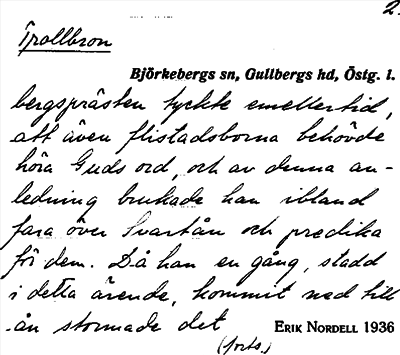 2.
Trollbron
Björkebergs sn, Gullbergs hd, Östg. l.
bergsprästen tyckte emellertid,
att även flistadsborna behövde
höra Guds ord, och av denna an-
ledning brukade han ibland
fara över Svartån och predika
för dem. Då han en gång, stadd
i detta ärende, kommit ned till
ån stormade det ERIK NORDELL 1936
(forts.)